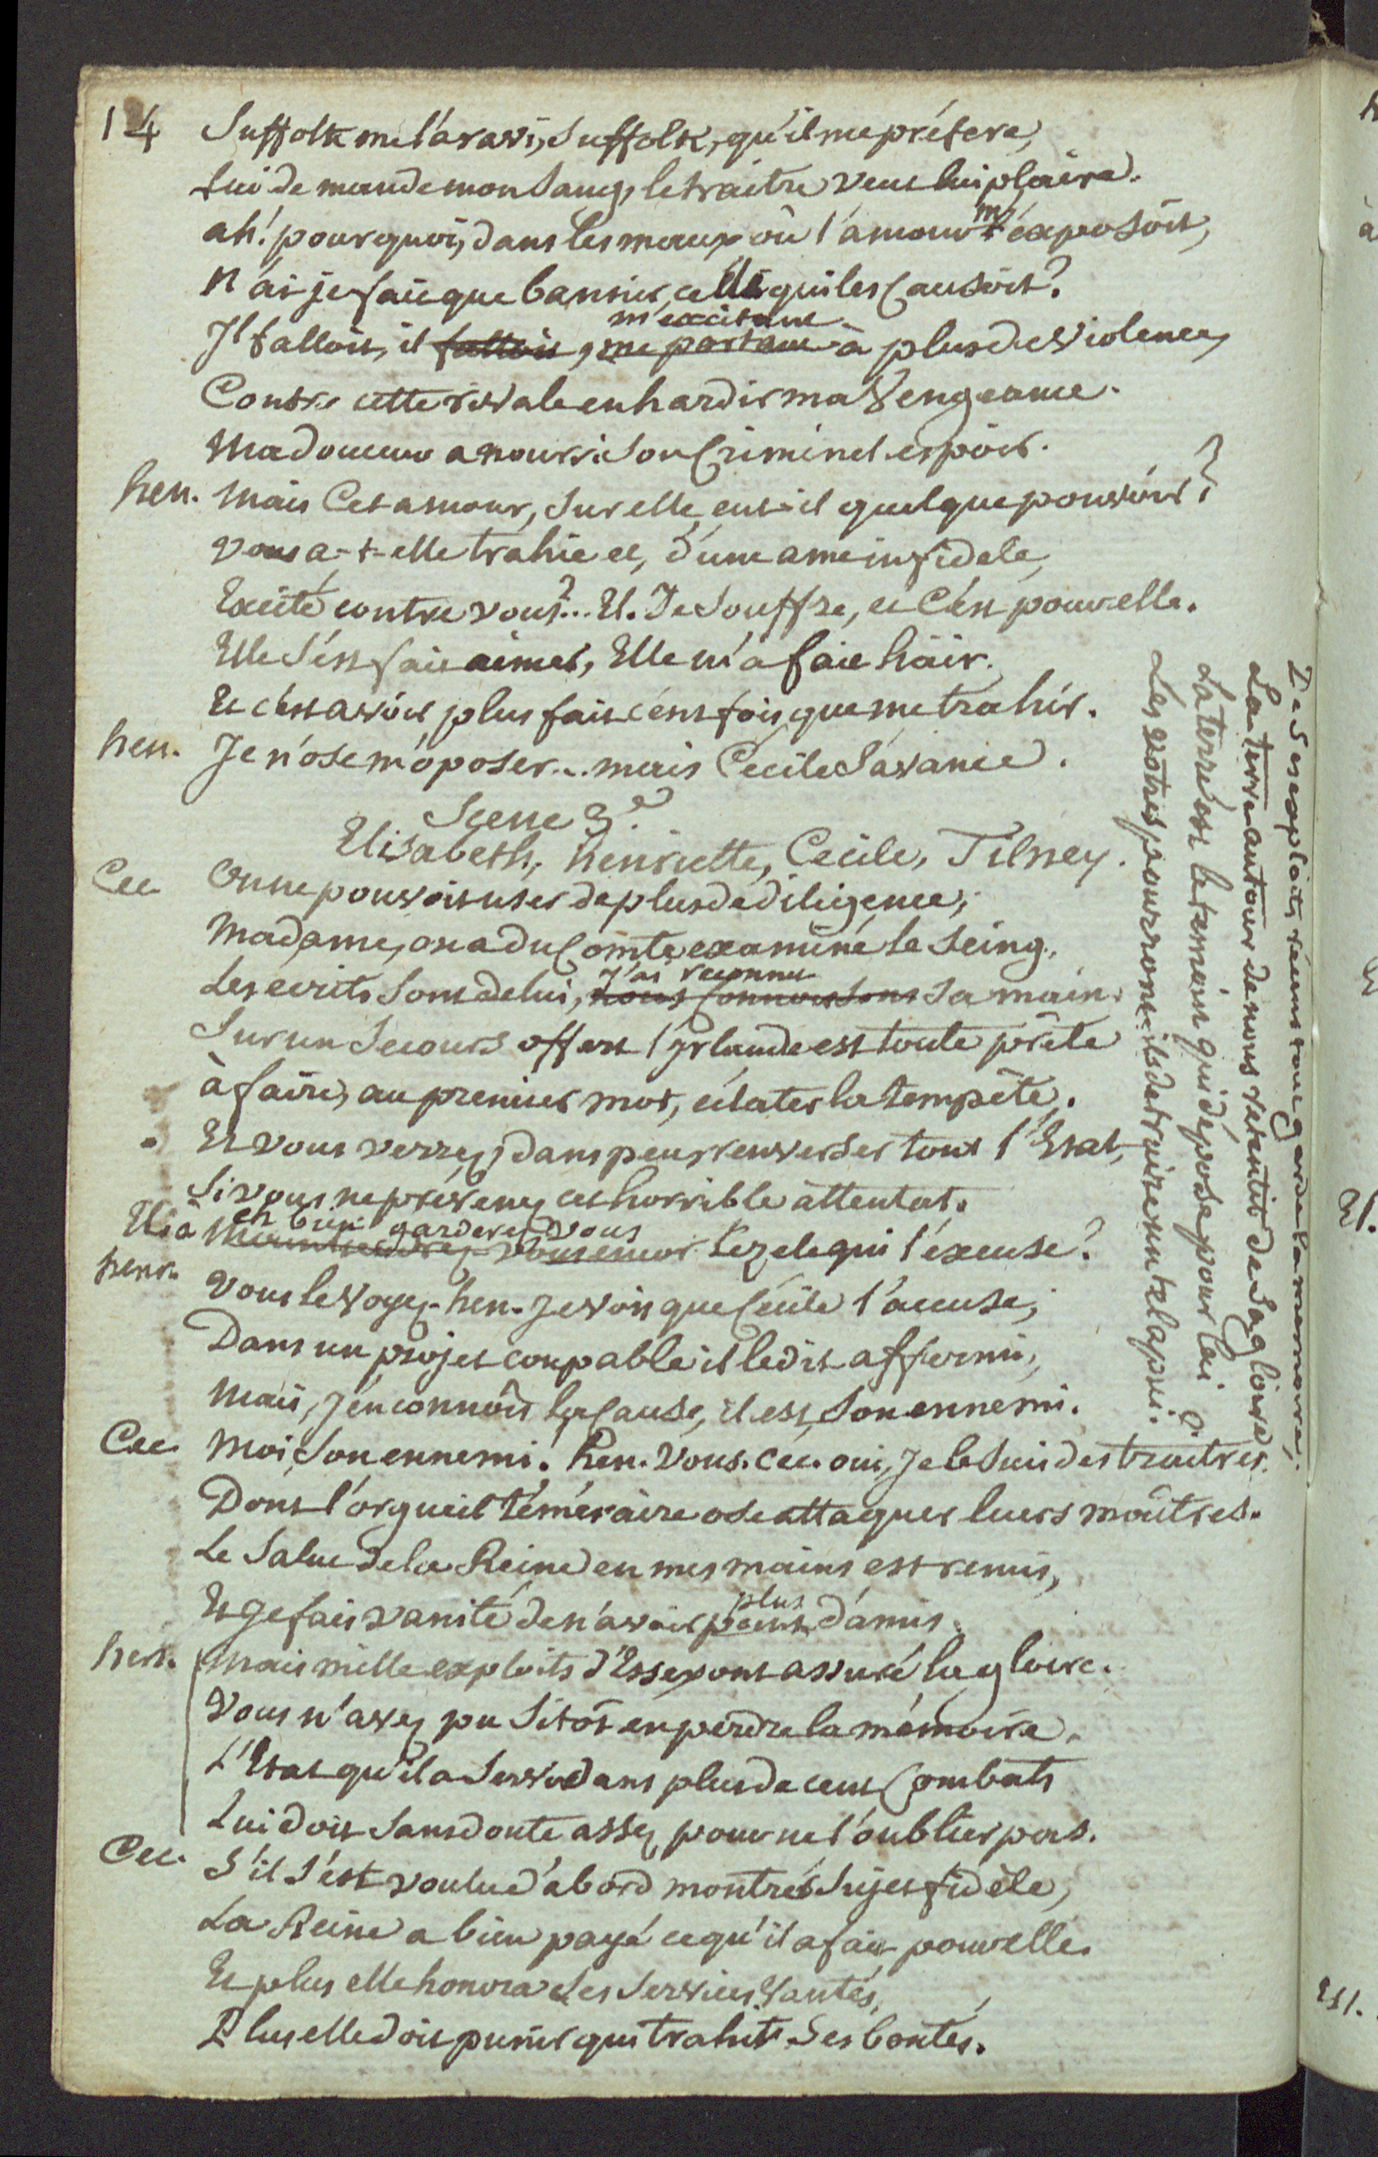 14 Suffolk me l'a ravi, Suffolk, qu'il me préfere,
Lui demande mon sang, le traitre veut lui plaire.
ah! pourquoi, dans les maux où l'amour m'éxposoit,
N'ai-je fait que bannir celle qui les Causoit?
m'excitant
Il falloit, il falloit, me portant à plus de violence,
Contre cette rivale enhardir ma Vengeance.
Ma douceur a nourri son Criminel espoir.
hen. Mais Cet amour, sur elle, eut-il quelque pouvoir?
Vous a-t-elle trahie et, d'une ame infidele,
Excité contre vous?... El. Je Souffre, et C'est pour elle.
Elle s'est fait aimer, Elle m'a fait haïr.
Et c'est avoir plus fait cent fois que me trahir.
hen. Je n'ose m'oposer... mais Cecile s'avance.
Scene 3e
Elisabeth, henriette, Cecile, Tilney.
Cec On ne pouvoit user de plus de diligence;
Madame, on a du Comte examiné le seing.
j'ai reconnu
Les ecrits sont de lui, nous Connoissons sa main.
Sur un secours offert l'Yrlande est toute prête
à faire, au premier mot, éclater la tempête.
Et vous verrez dans peu renverser tout l'Etat,
Si vous ne prévenez cet horrible attentat.
eh bien garderez vous
El à henr. encor le zele qui l'éxcuse?
Vous le voyez. hen. Je vois que Cécile l'accuse;
Dans un projet coupable il le dit affermi,
Mais, j'en connois la Cause, il est son ennemi.
Cec. Moi, son ennemi! hen. Vous. cec. oui, je le suis des traitres
Dont l'orgueil téméraire ose attaquer leurs maîtres.
Le Salut de la Reine en mes mains est remis,
plus
Et je fais vanité de n'avoir point d'amis.
hen. Mais mille exploits d'Essex ont assuré la gloire.
Vous n'avez pu sitôt en perdre la mémoire.
L'Etat qu'il a servi dans plus de cent Combats
Lui doit sans doute assez pour ne l'oublier pas.
Cec. S'il s'est voulu d'abord montrer Sujet fidèle,
La Reine a bien payé ce qu'il a fait pour elle
Et plus elle honora ses services vantés,
Plus elle doit punir qui trahit ses bontés.
De ses exploits récens tout garde la memoire,
La terre autour de nous retentit de sa gloire
La terre est le temoin qui dépose pour lui
Les votres pourront-ils detruire un tel apui?